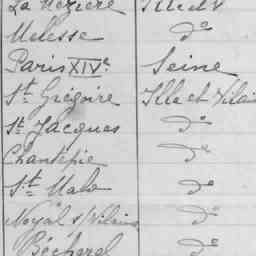 La Mézière Ille et V
Melesse do
Paris XIVe Seine
St Grégoire Ille et Vilain
St Jacques do
Chantepie do
St Malo do
Noyal s/Vilaine do
Bécherel do